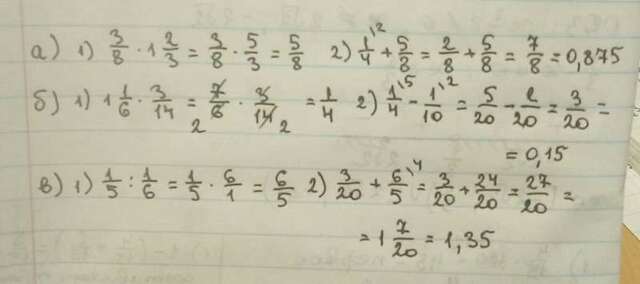 а) 1) 3/8 · 1 2/3 = 3/8 · 5/3 = 5/8 2) 1/4\2 + 5/8 = 2/8 + 5/8 = 7/8 = 0,875
б) 1) 1 1/6 · 3/14 = 7/6 2 · 3/14 2 = 1/4 2) 1/4\5 - 1/10\2 = 5/20 - 2/20 = 3/20 =
= 0,15
в) 1) 1/5 : 1/6 = 1/5 · 6/1 = 6/5 2) 3/20 + 6/5\4 = 3/20 + 24/20 = 27/20 =
= 1 7/20 = 1,35